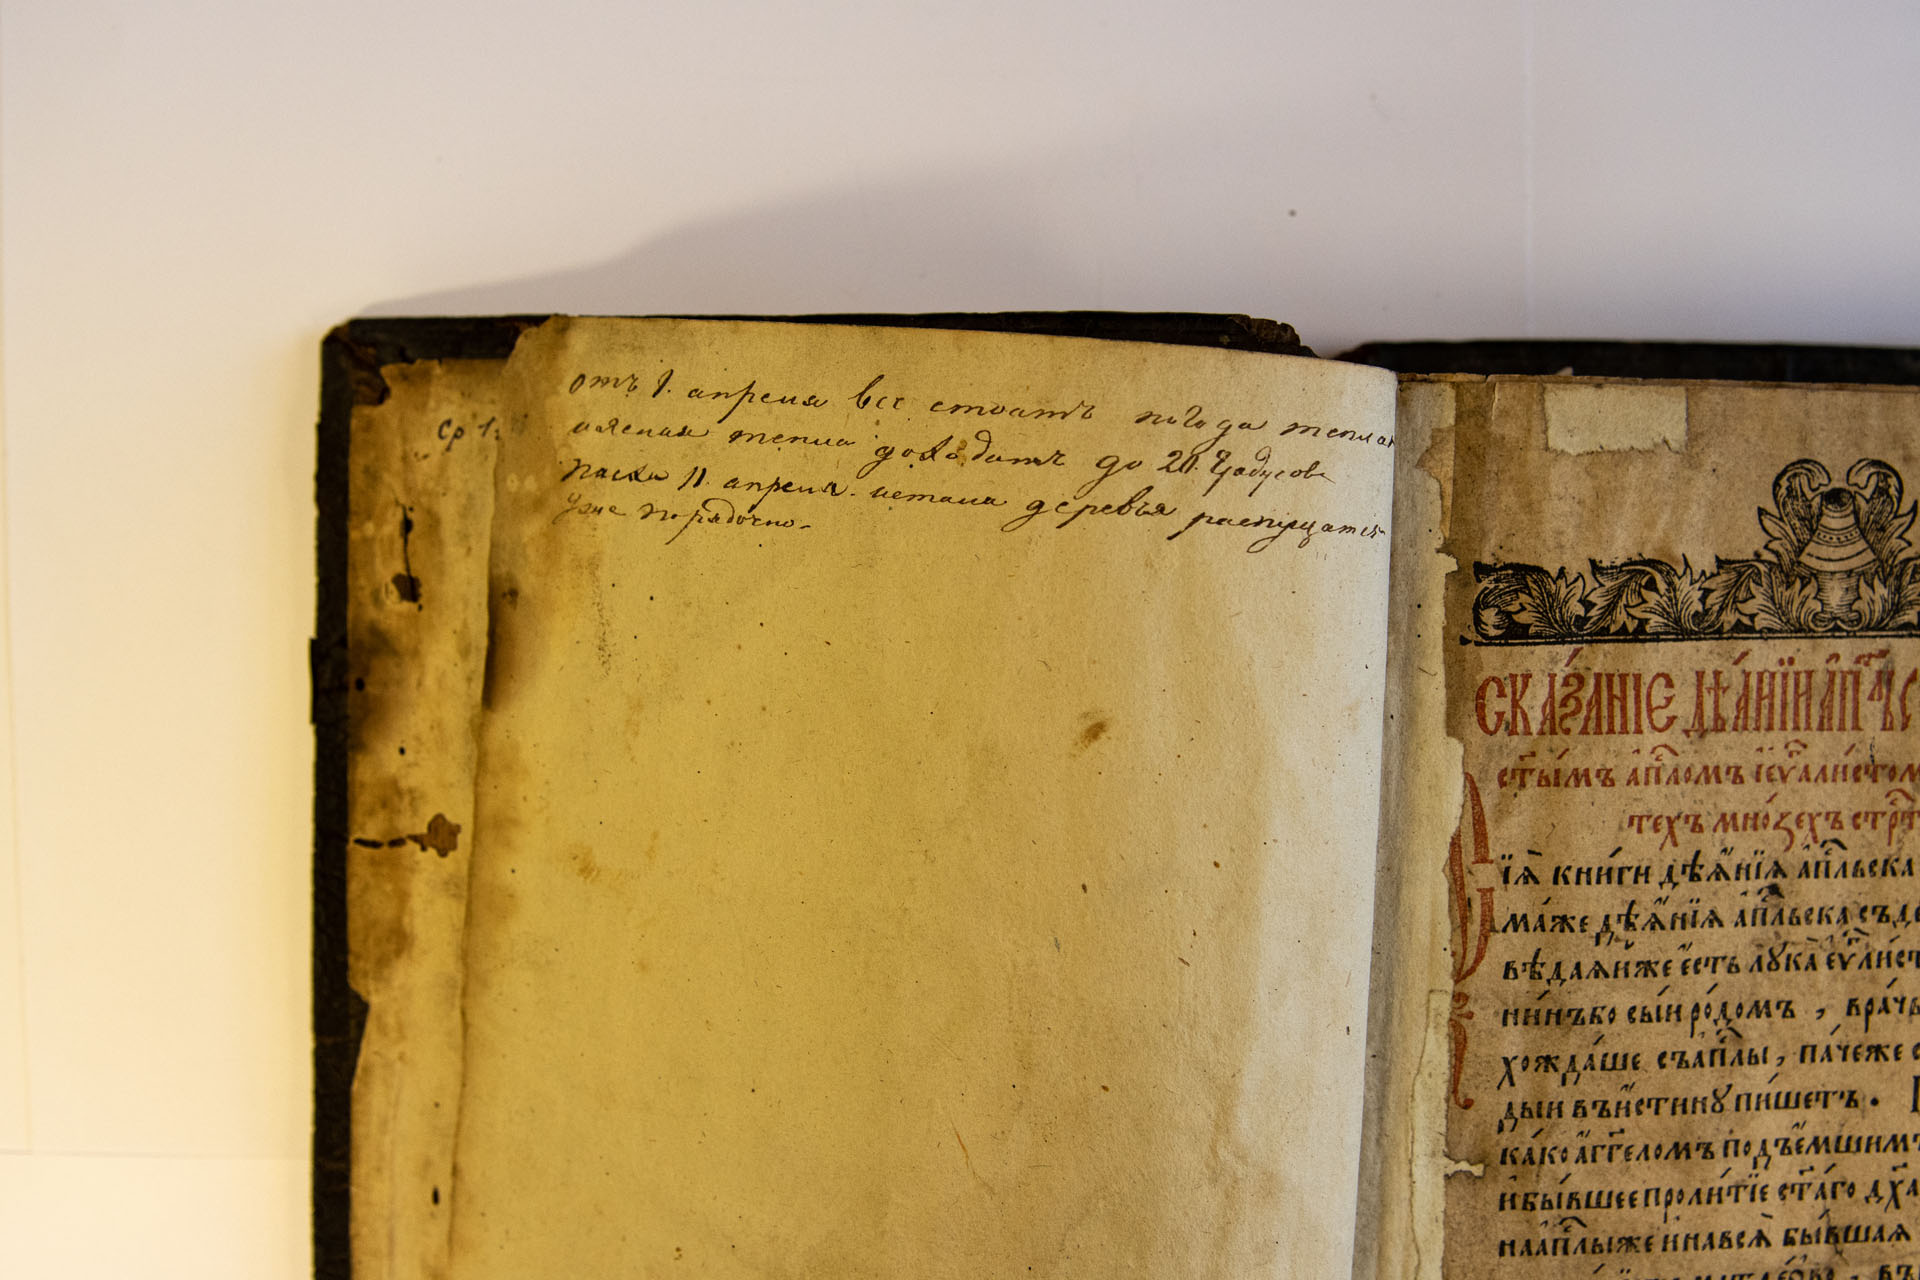 Ср 1:
отъ 1. апреля все стоатъ погода теплая
иясная тепла доходитъ до 20. градусовъ
пасха 11. апреля. деревья распущатся
уже порядочно.
СКА́ЗАНІЕ ДѢѦ́НІЙ А҆Пⷭ҇ЛЪС
ст҃ы́мъ а҆пⷭ҇ломъ і҆ еѵⷢ҇алі́стом
техъ мно́зехъ стрⷭ҇т
їѧ̀ кни́ги дѣѧ̑нїѧ а҆пⷭ҇льска
ма́же дѣѧ̑нїѧ а҆пⷭ҇льска съдѣ
вѣдаѧ́й же є҆́сть лꙋка̀ є҆ѵⷢ҇лі́ст
ни́нъ бо сы́й ро́домъ , вра́чь
хожда́ше съ а҆пⷭ҇лы , па́че же с
ды́й въ и҆́стинꙋ пи́шетъ .
ка́ко а҆́гг҃еломъ подъе́мшимъ
и҆ бы́вшее проли́тїе ст҃а́го дх҃а
на а҆пⷭ҇лы же и҆ на всѧ̀ бы́вшаѧ